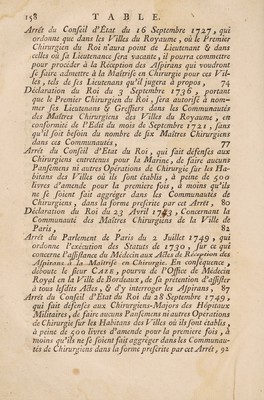 158 TABLE.
Arrêt du Conseil d'Etat du 16 Septembre 1727, qui
ordonne que dans les Villes du Royaume, où le Premier
Chirurgien du Roi n'aura point de Lieutenant & dans
celles où sa Lieutenance sera vacante, il pourra commettre
pour procéder à la Réception des Aspirans qui voudront
se faire admettre à la Maîtrise en Chirurgie pour ces Vil-
les, tels de ses Lieutenans qu'il jugera à propos, 74
Déclaration du Roi du 3 Septembre 1736, portant
que le Premier Chirurgien du Roi, sera autorisé à nom-
mer ses Lieutenans & Greffiers dans les Communautés
des Maîtres Chirurgiens des Villes du Royaume, en
conformité de l'Edit du mois de Septembre 1723, sans
qu'il soit besoin du nombre de six Maîtres Chirurgiens
dans ces Communautés, 77
Arrêt du Conseil d'Etat du Roi, qui fait défenses aux
Chirurgiens entretenus pour la Marine, de faire aucuns
Pansemens ni autres Opérations de Chirurgie sur les Ha-
bitans des Villes où ils sont établis, à peine de 500
livres d'amende pour la premiere fois, à moins qu'ils
ne se soient fait aggréger dans les Communautés de
Chirurgiens, dans la forme prescrite par cet Arrêt, 80
Déclaration du Roi du 23 Avril 1743, Concernant la
Communauté des Maîtres Chirurgiens de la Ville de
Paris, 82
Arrêt du Parlement de Paris du 2 Juillet 1749, qui
ordonne l'exécution des Statuts de 1730, sur ce qui
concerne l'assistance du Médecin aux Actes de Réception des
Aspirans à la Maîtrise en Chirurgie. En conséquence,
déboute le sieur CAZE, pourvu de l'Office de Médecin
Royal en la Ville de Bordeaux, de sa prétention d'assister
à tous lesdits Actes, & d'y interroger les Aspirans, 87
Arrêt du Conseil d'Etat du Roi du 28 Septembre 1749,
qui fait défenses aux Chirurgiens-Majors des Hôpitaux
Militaires, de faire aucuns Pansemens ni autres Opérations
de Chirurgie sur les Habitans des Villes où ils sont établis,
à peine de 500 livres d'amende pour la premiere fois, à
moins qu'ils ne se soient fait aggréger dans les Communau-
tés de Chirurgiens dans la forme prescrite par cet Arrêt, 92